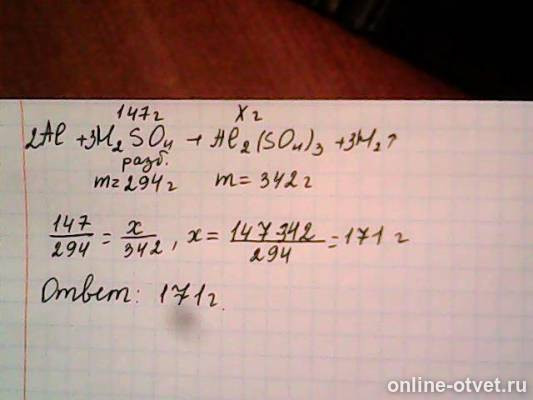 147г Хг
2Al + 3H₂SO₄ → Al₂(SO₄)₃ + 3H₂↑
разб.
m = 294г m = 342г
147/294 = x/342, x = 147 342/294 = 171 г
Ответ: 171г.
online-otvet.ru